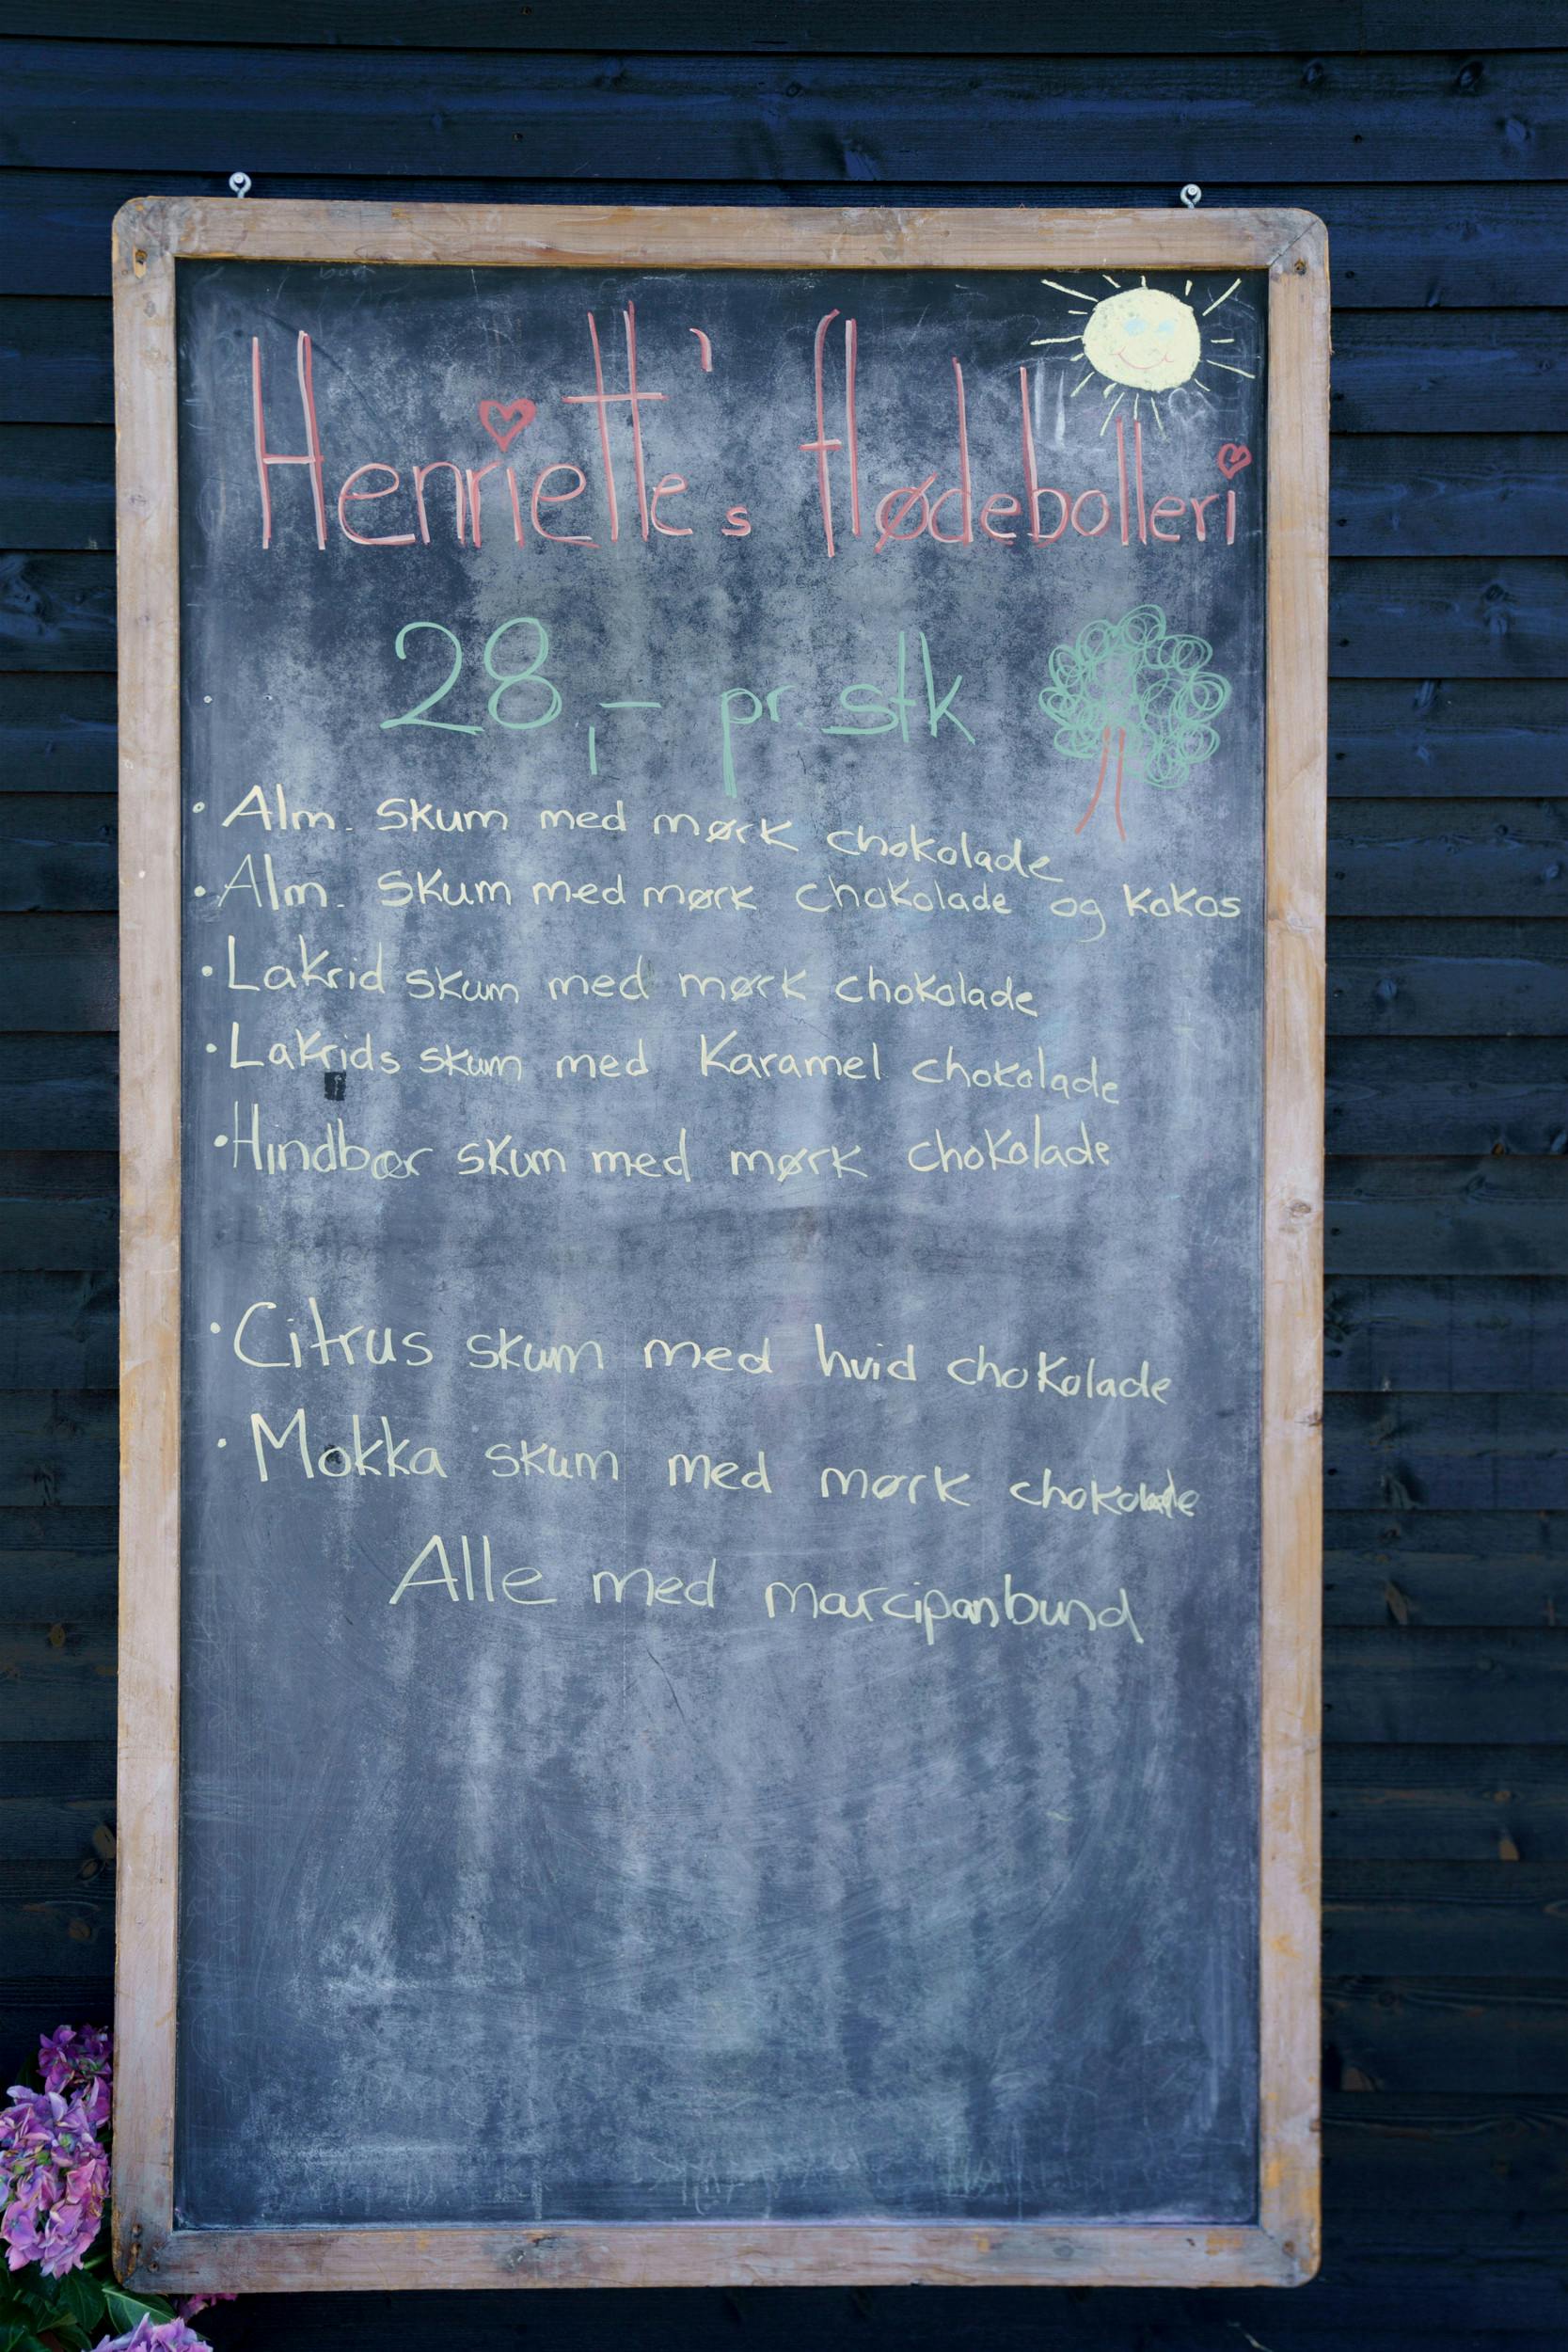 Henriette's flødebolleri
28,- pr. stk
• Alm. skum med mørk chokolade
• Alm. skum med mørk chokolade og kokos
• Lakrid skum med mørk chokolade
• Lakrids skum med Karamel chokolade
• Hindbær skum med mørk chokolade
• Citrus skum med hvid chokolade
• Mokka skum med mørk chokolade
Alle med marcipanbund